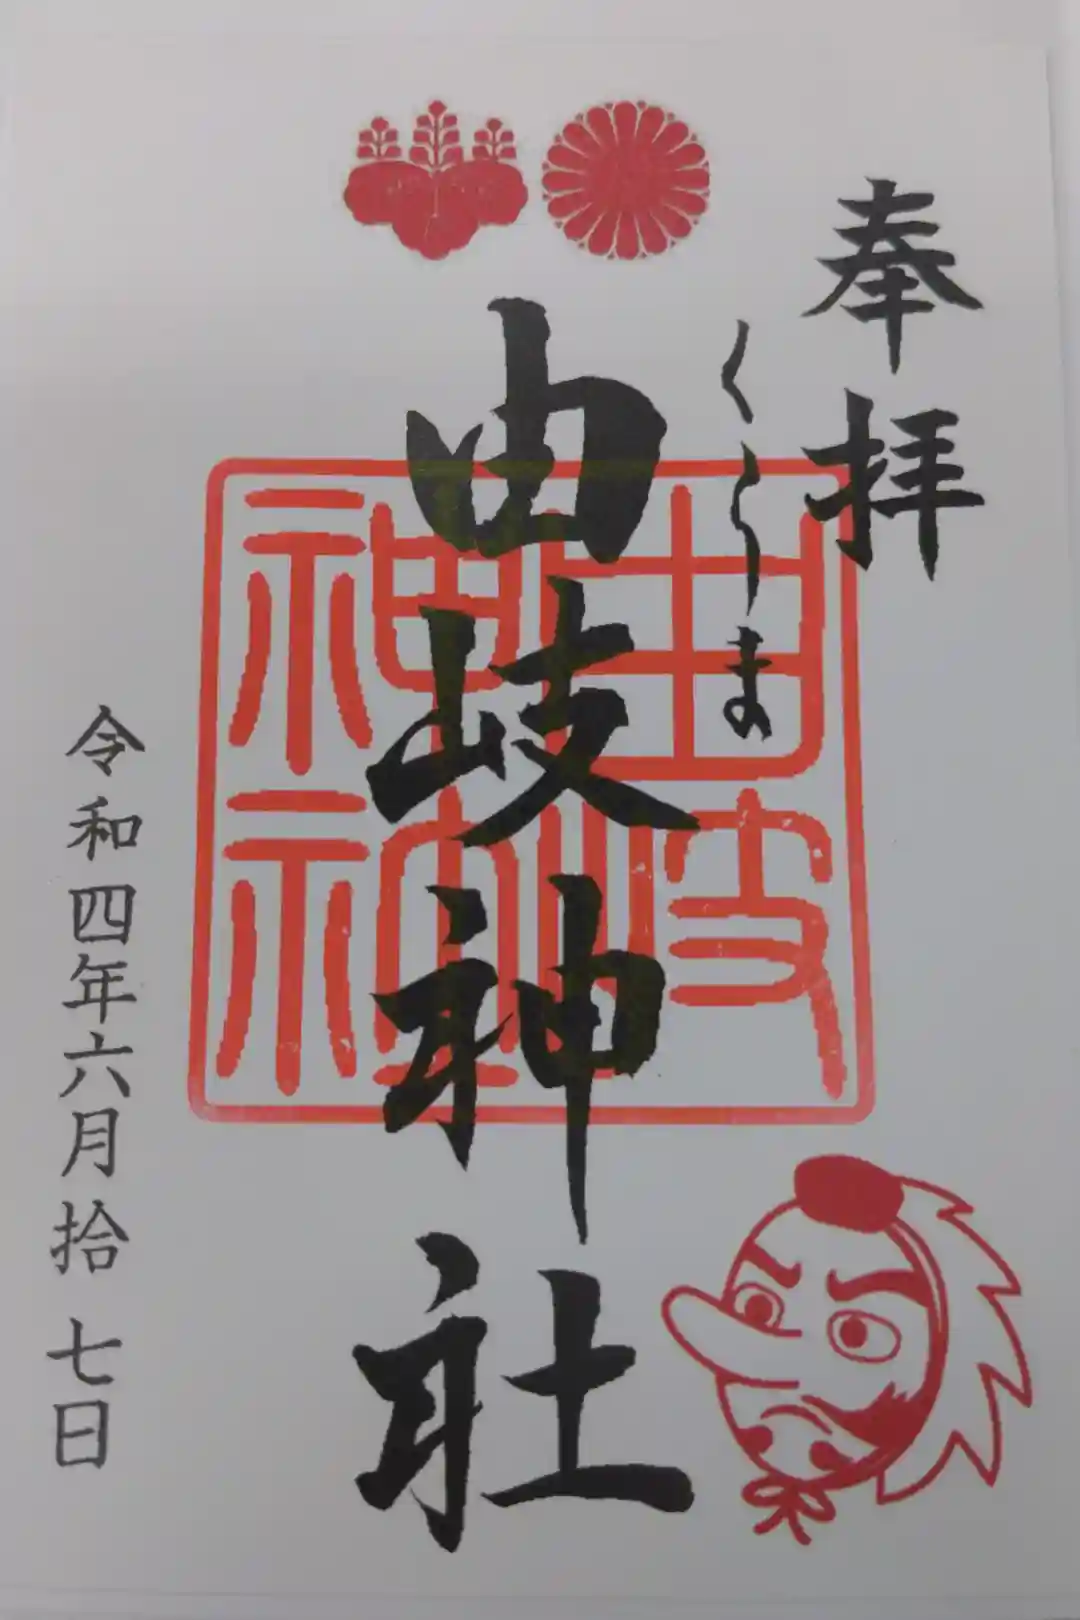 奉拝
くらま
由岐神社
由岐
神社
令和四年六月拾七日